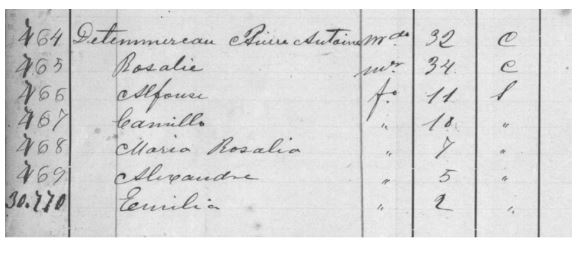 464 Detemmerean Pierre Antoine mdo 32 C
465 Rosalie mer 34 C
466 Alfonse fo 11 S
467 Camillo " 10 "
468 Maria Rosalia " 7 "
469 Alexandre " 5 "
30.770 Emilia " 2 "